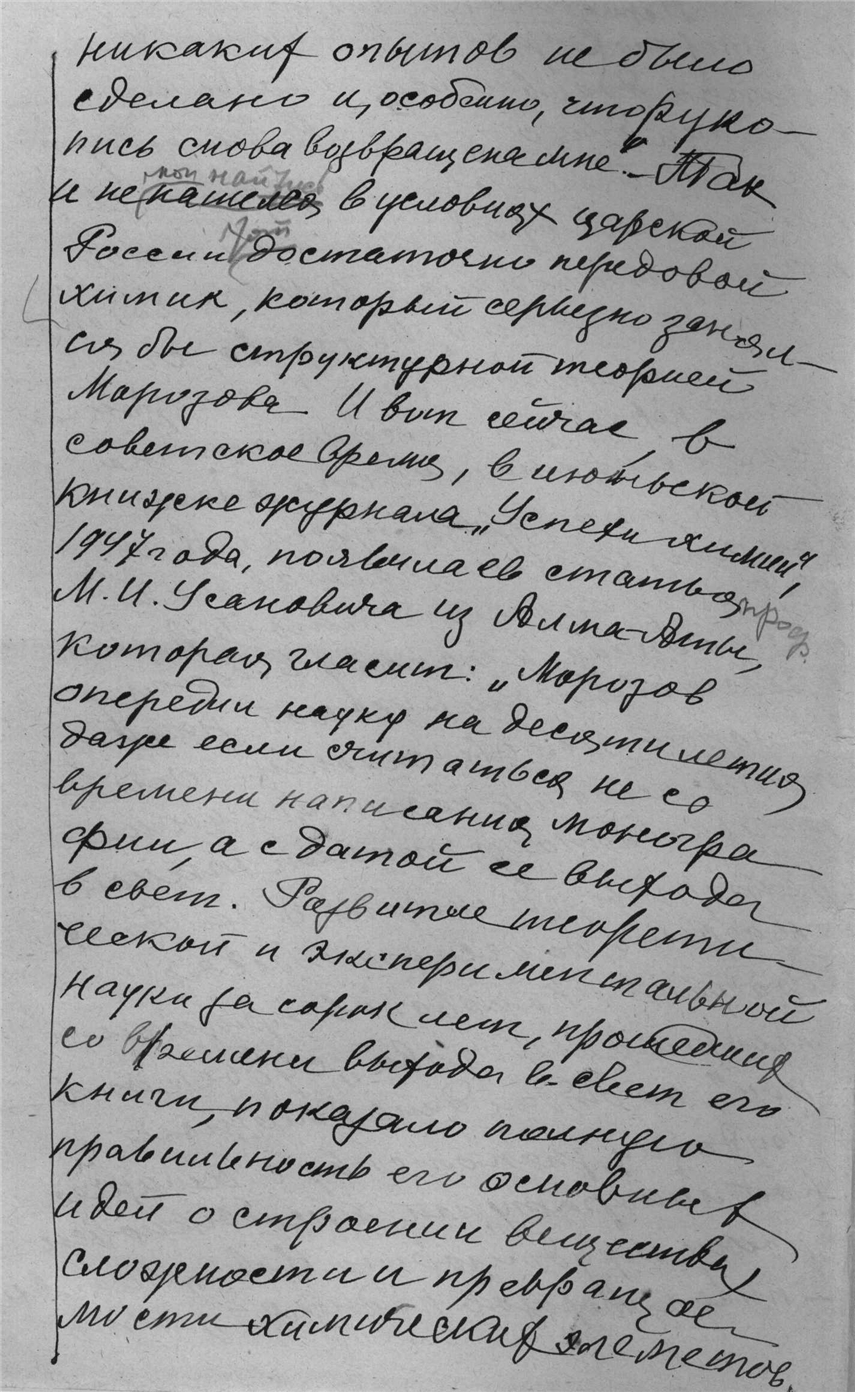 никаких опытов не было
сделано и, особенно, что руко-
пись снова возвращена мне". - Так
мог найтись
и не нашелся в условиях царской
тот
России достаточно передовой
химик, который серьезно занял-
ся бы структурной теорией
Морозова И вот сейчас, в
советское время, в июльской
книжке журнала „Успехи химии",
1947 года, появилась статья проф.
М.И. Усановича из Алма-Аты,
которая гласит: „Морозов
опередил науку на десятилетия
даже если считаться не со
времени написания моногра
фии, а с датой ее выхода
в свет. Развитие теорети-
ческой и экспериментальной
науки за сорок лет, прошедших
со времени выхода в свет его
книги, показало полную
правильность его основных
идей о строении вещества,
сложности и превращае-
мости химических элементов.